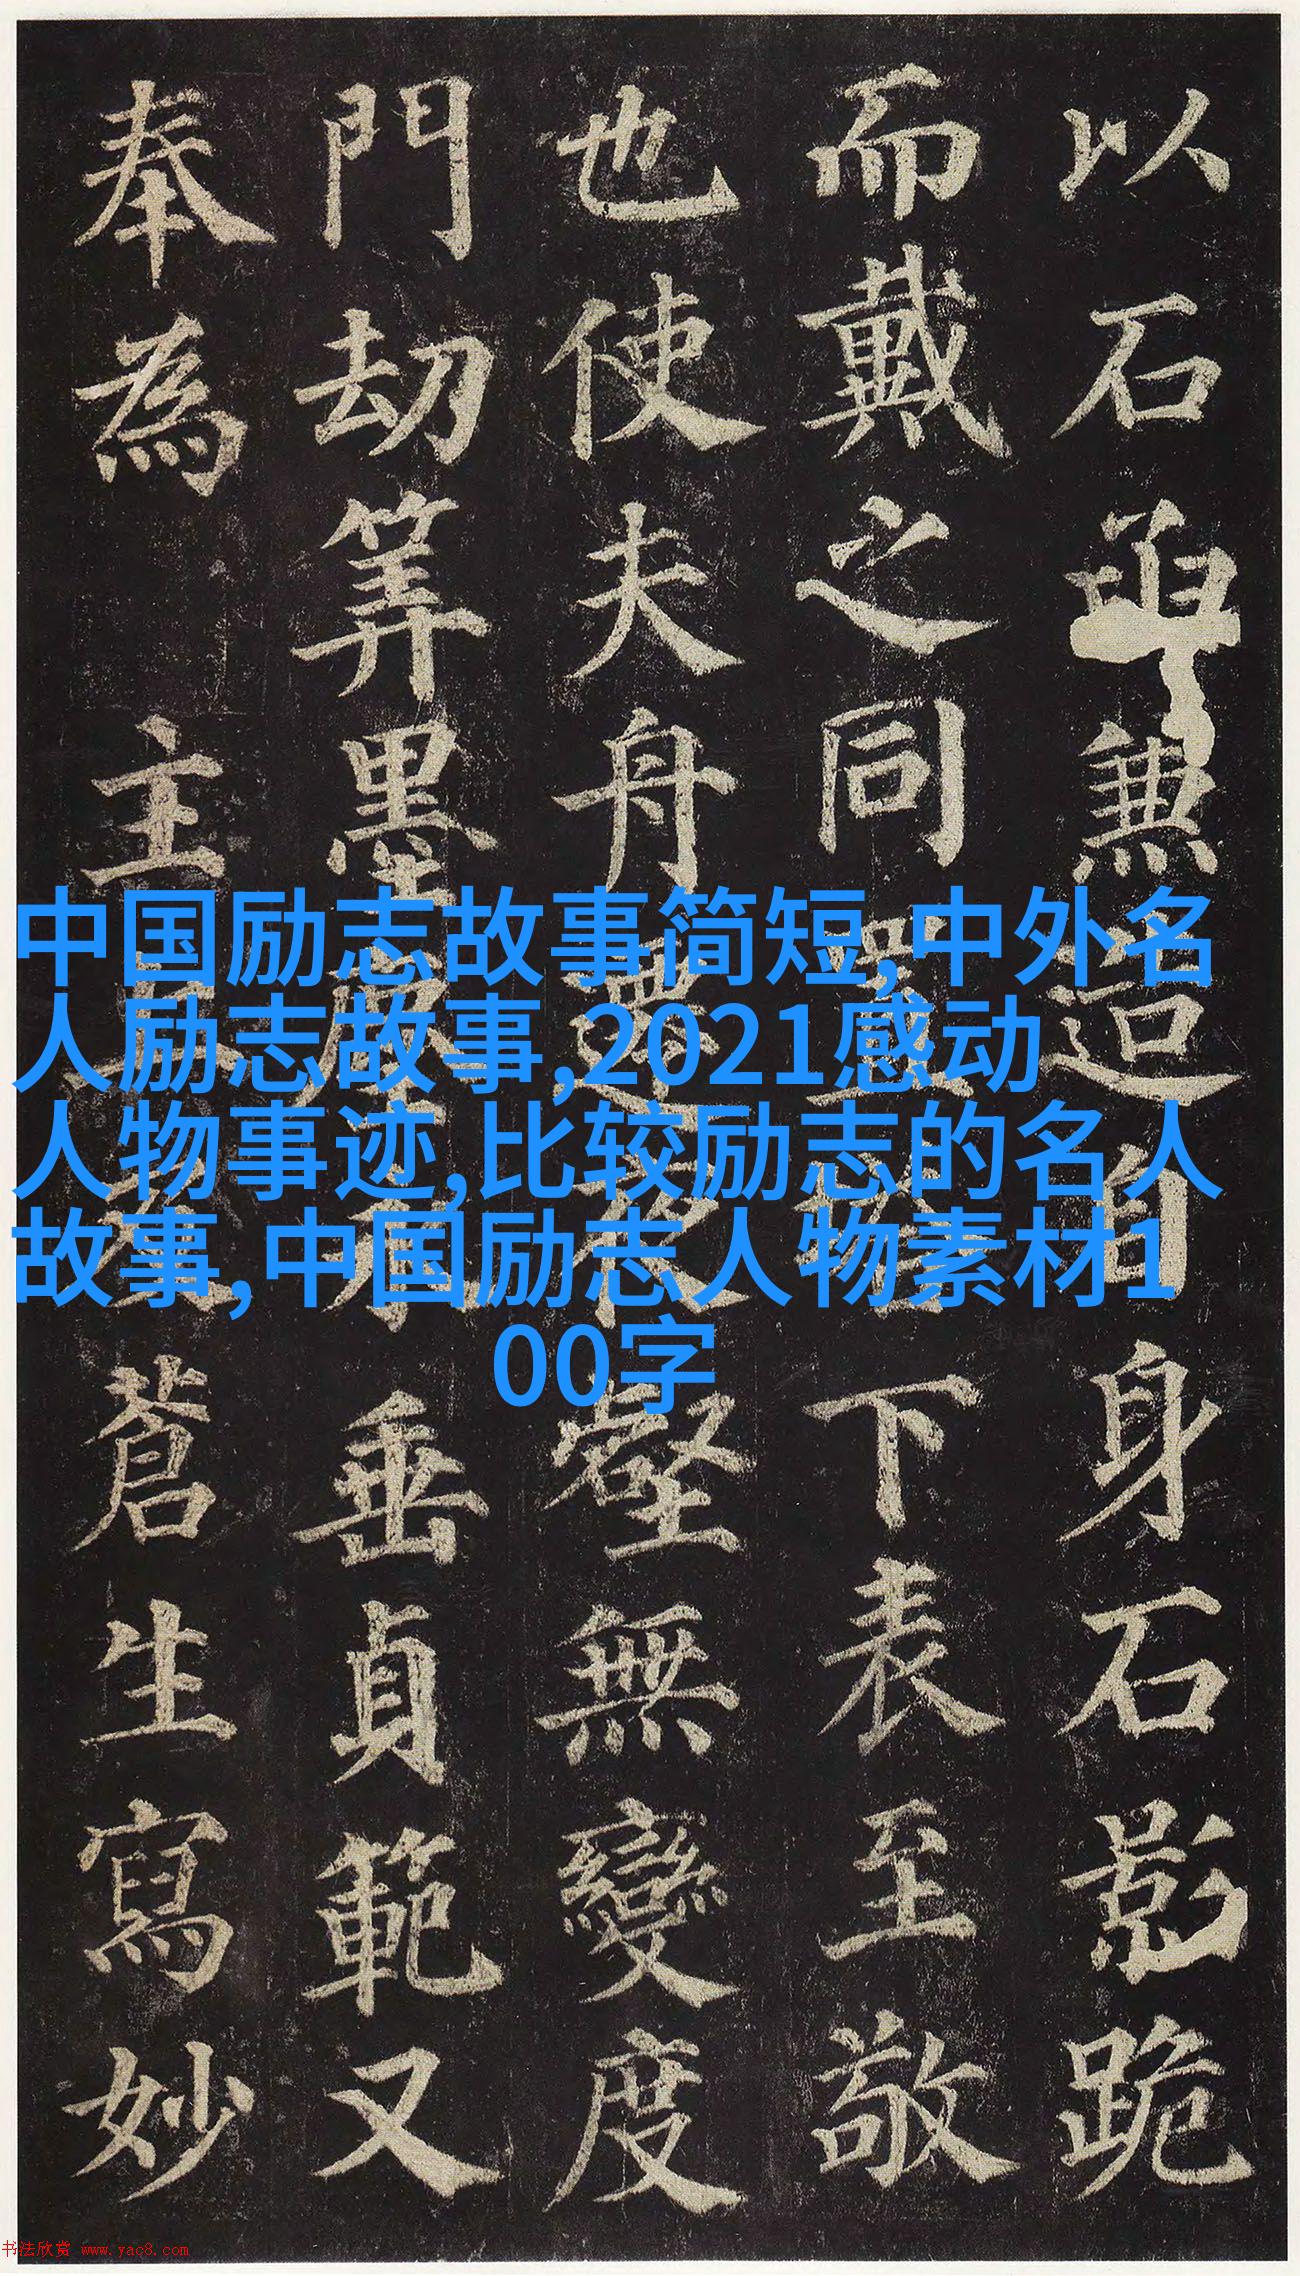 以石無造自身石影跪
而戴之同下表至敬
也使夫舟遷夜壑無變度
門劫筭墨塵永垂貞範又
奉為主蒼生寫妙
中国励志故事简短,中外名
人励志故事,2021感动
人物事迹,比较励志的名人
故事,中国励志人物素材1
00字
书法欣赏 www.yac8.com